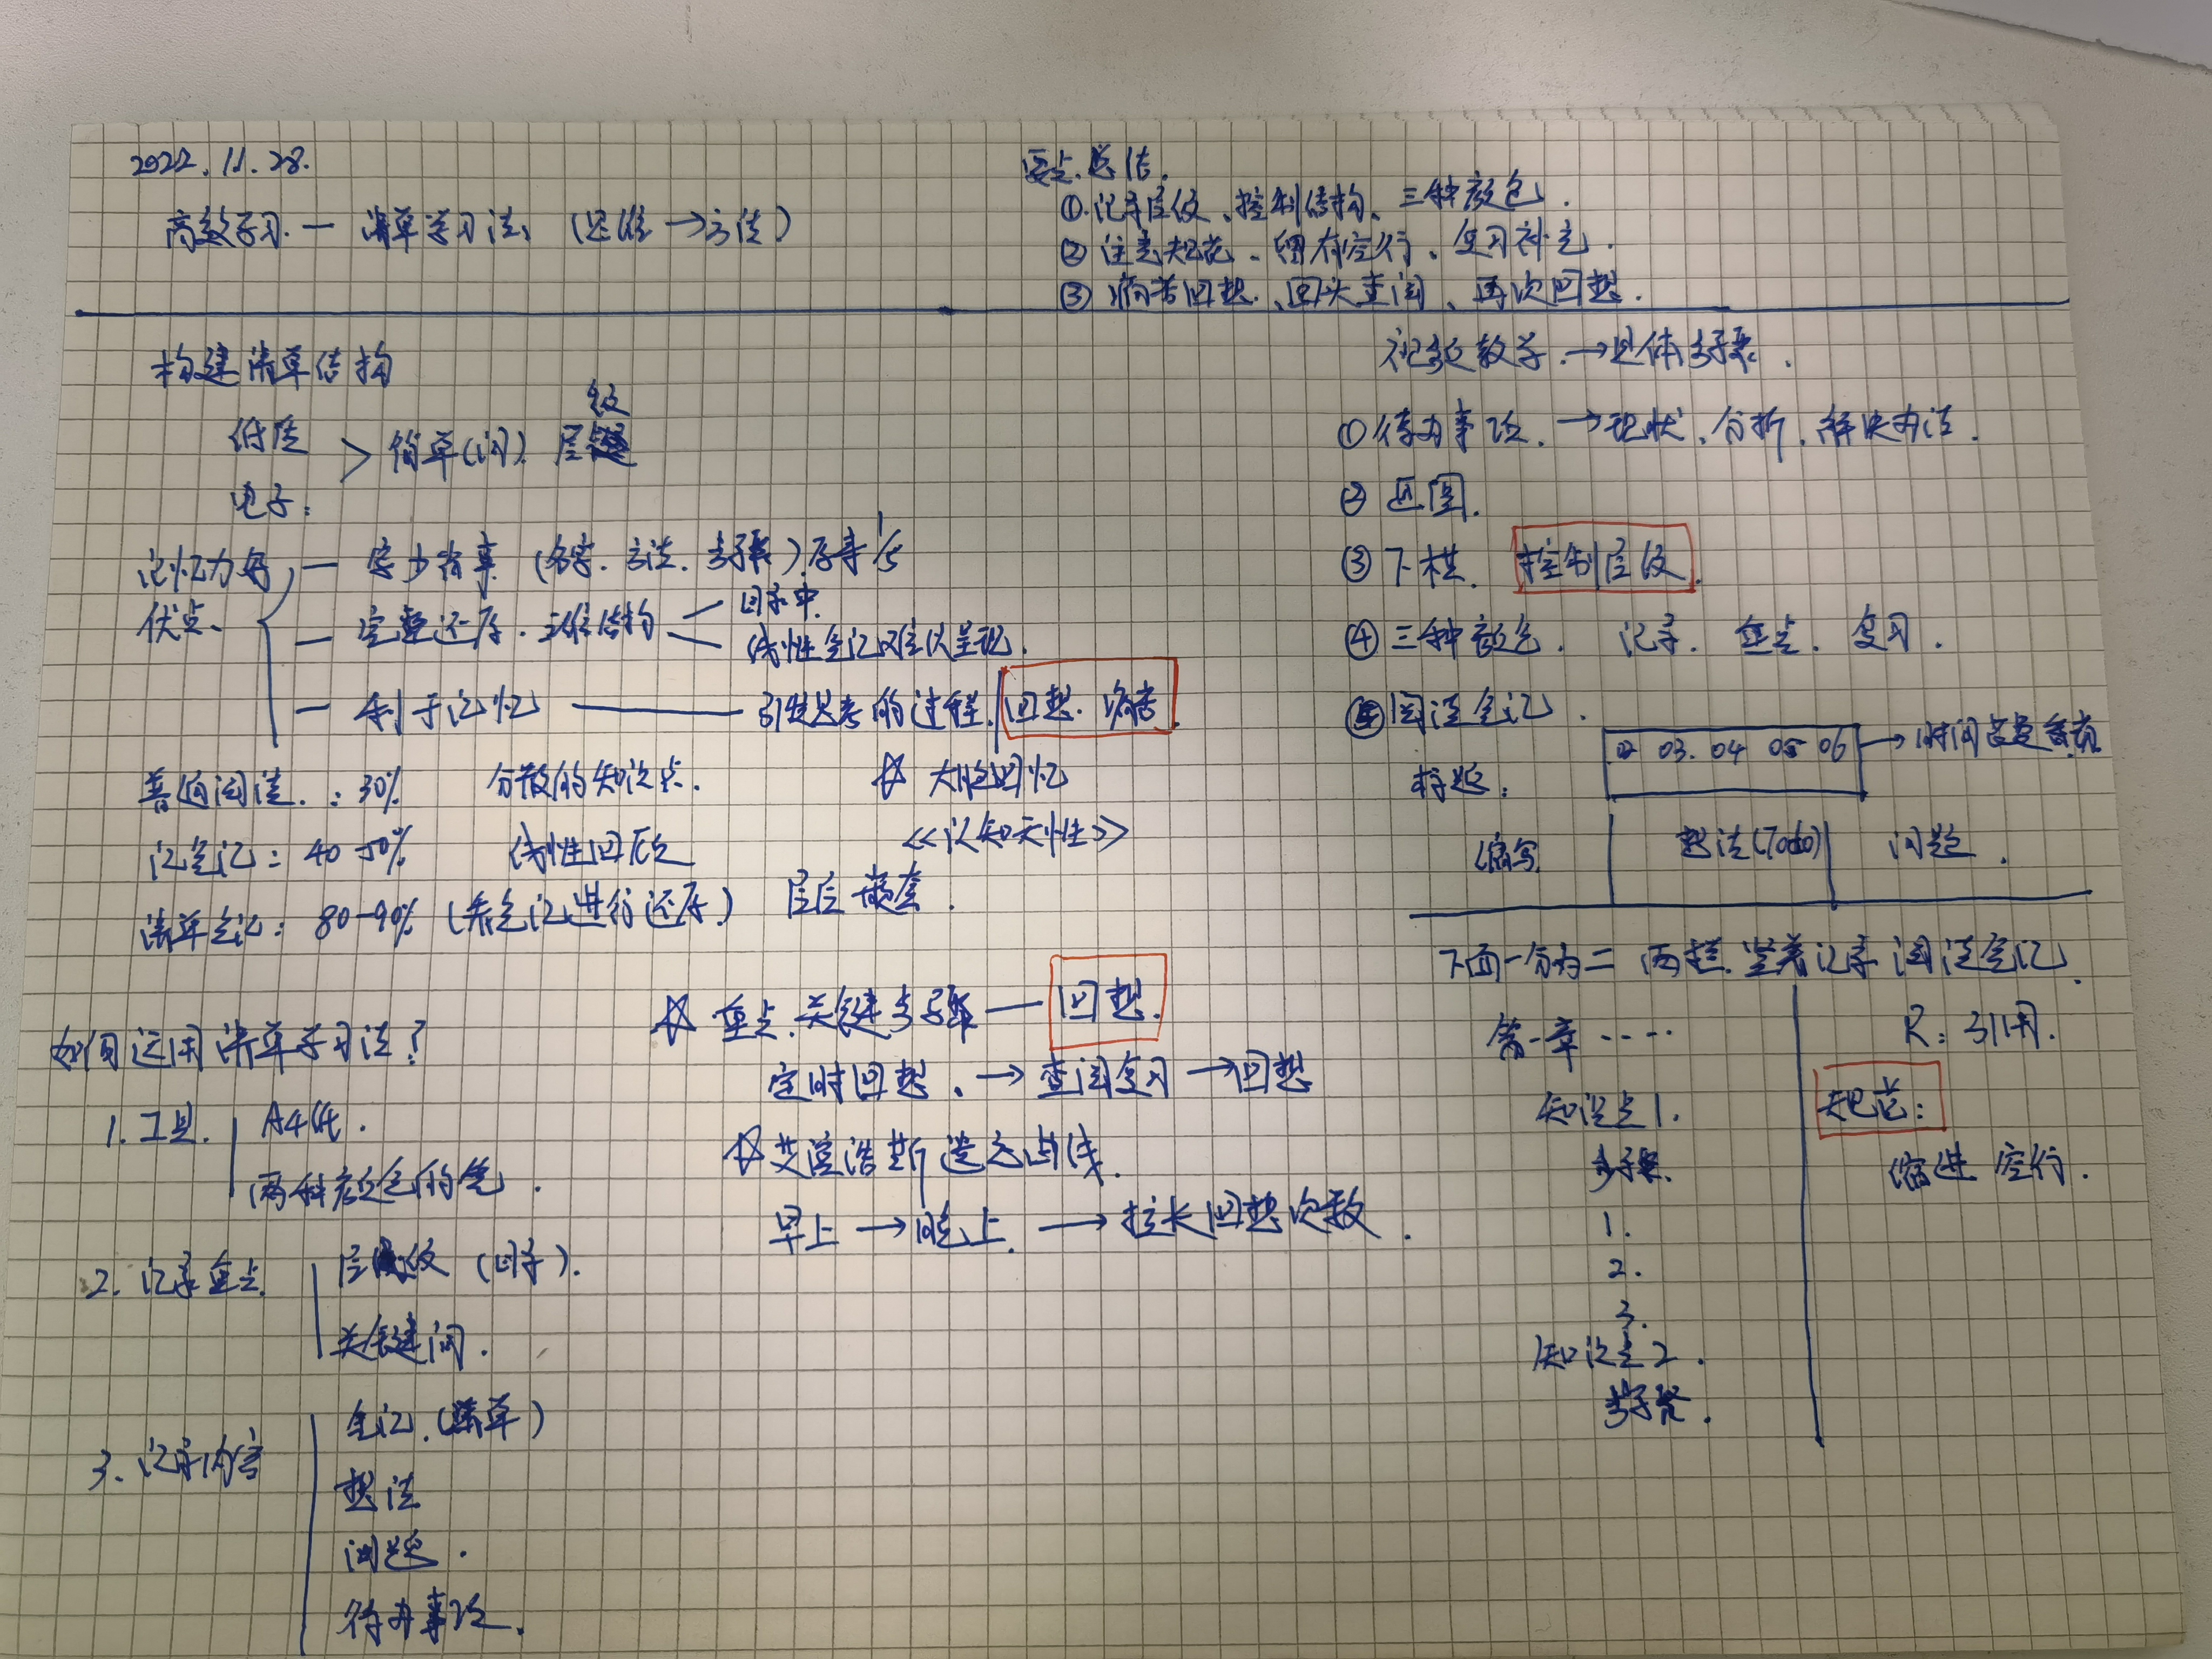 2022.11.28.
高效学习 — 清单学习法 (思维→方法)
要点总结.
①记录层级、控制结构、三种颜色.
②注意规范、留有空行、复习补充.
③痛苦回想、回头查阅、再次回想.
构建清单结构
纸质
电子:
> 简单(词) 层级
记忆力好
优点、
— 字少省事 (名字、方法、步骤) 1/5
— 完整还原、三维结构
目录中.
线性笔记难以呈现.
— 利于记忆 — 引发思考的过程. 回想. 痛苦.
普通阅读.: 30% 分散的知识点.
☆ 大胆回忆
记笔记: 40-50% 线性回顾
《认知天性》
清单笔记: 80-90% (看笔记进行还原) 层层嵌套.
☆ 重点、关键步骤 — 回想.
定时回想、→ 查阅复习 → 回想
☆ 艾宾浩斯遗忘曲线.
早上 → 晚上 → 拉长回想次数.
如何运用清单学习法?
1. 工具.
A4纸.
两种颜色的笔.
2. 记录重点
层级 (目录).
关键词.
3. 记录内容
笔记.(清单)
想法
问题.
待办事项.
视频教学 → 具体步骤.
①待办事项、→ 现状、分析、解决办法.
②
③下棋. 控制层级.
④三种颜色. 记录. 重点. 复习.
⑤阅读笔记.
标题:
02 03. 04 05 06 → 时间
缩写 想法(Todo) 问题.
下面一分为二 两栏. 竖着记录阅读笔记.
第一章 ....
知识点1.
步骤.
1.
2.
3.
知识点2.
步骤.
R: 引用.
规范:
缩进 空行.